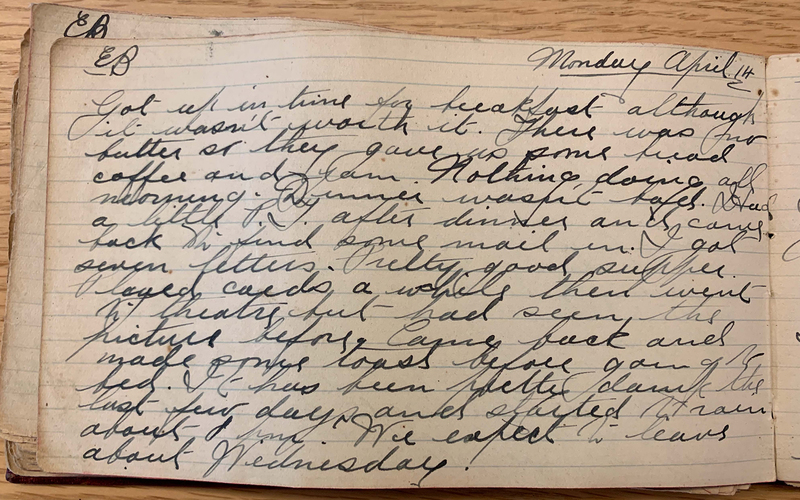 EB
EB
Monday April 14
Got up in time for breakfast although
it wasn't worth it. There was no
butter so they gave us some bread
coffee and jam. Nothing doing all
morning. Dinner wasn't bad. Had
a little P.T. after dinner and came
back to find some mail in. I got
seven letters. Pretty good supper.
Played cards a while then went
to theatre but had seen the
picture before. Came back and
made some toast before going to
bed. It has been pretty damp the
last few days and started to rain
about 8 pm. We expect to leave
about Wednesday.